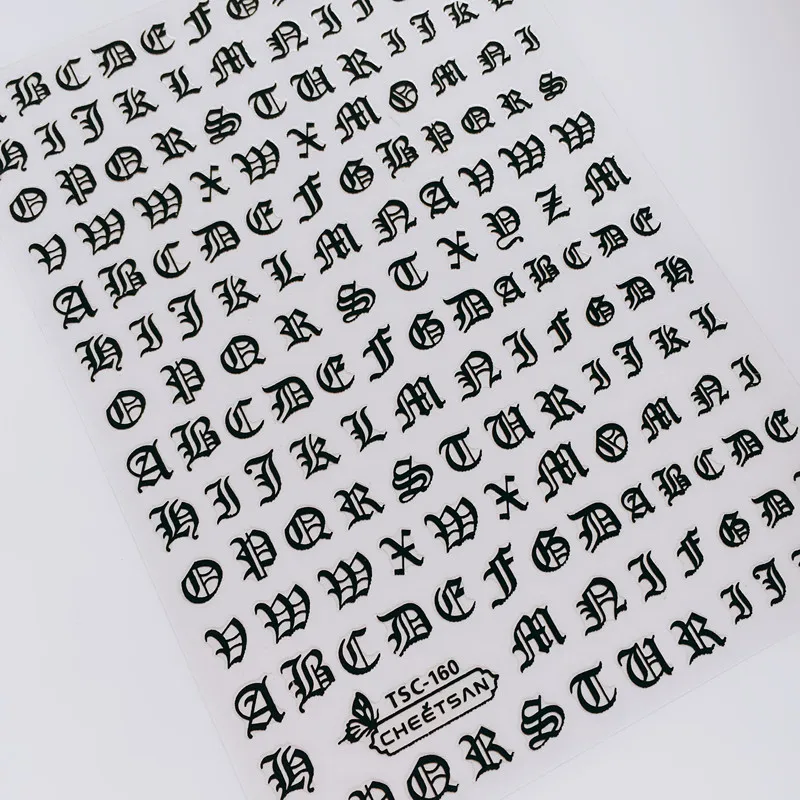 A B C D E F G
H I J K L M N I F
O P Q R S T U R I J K L
V W W X W X M O M N I
A B C D E F G B P Q R S
H I J K L M N A V V W W
O P Q R S T X Y Z M
A B C D E F G D A B C D E
H I J K L M N I F G D H
O P Q R S T U R I J K L
V W W X W X M O M N I
A B C D E F G D A B C D E
H M N I F G D
TSC-160
CHEETSAN
P Q R S T U R I J